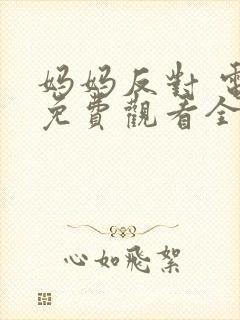 妈妈反對 電
免費觀看全
心如飛絮